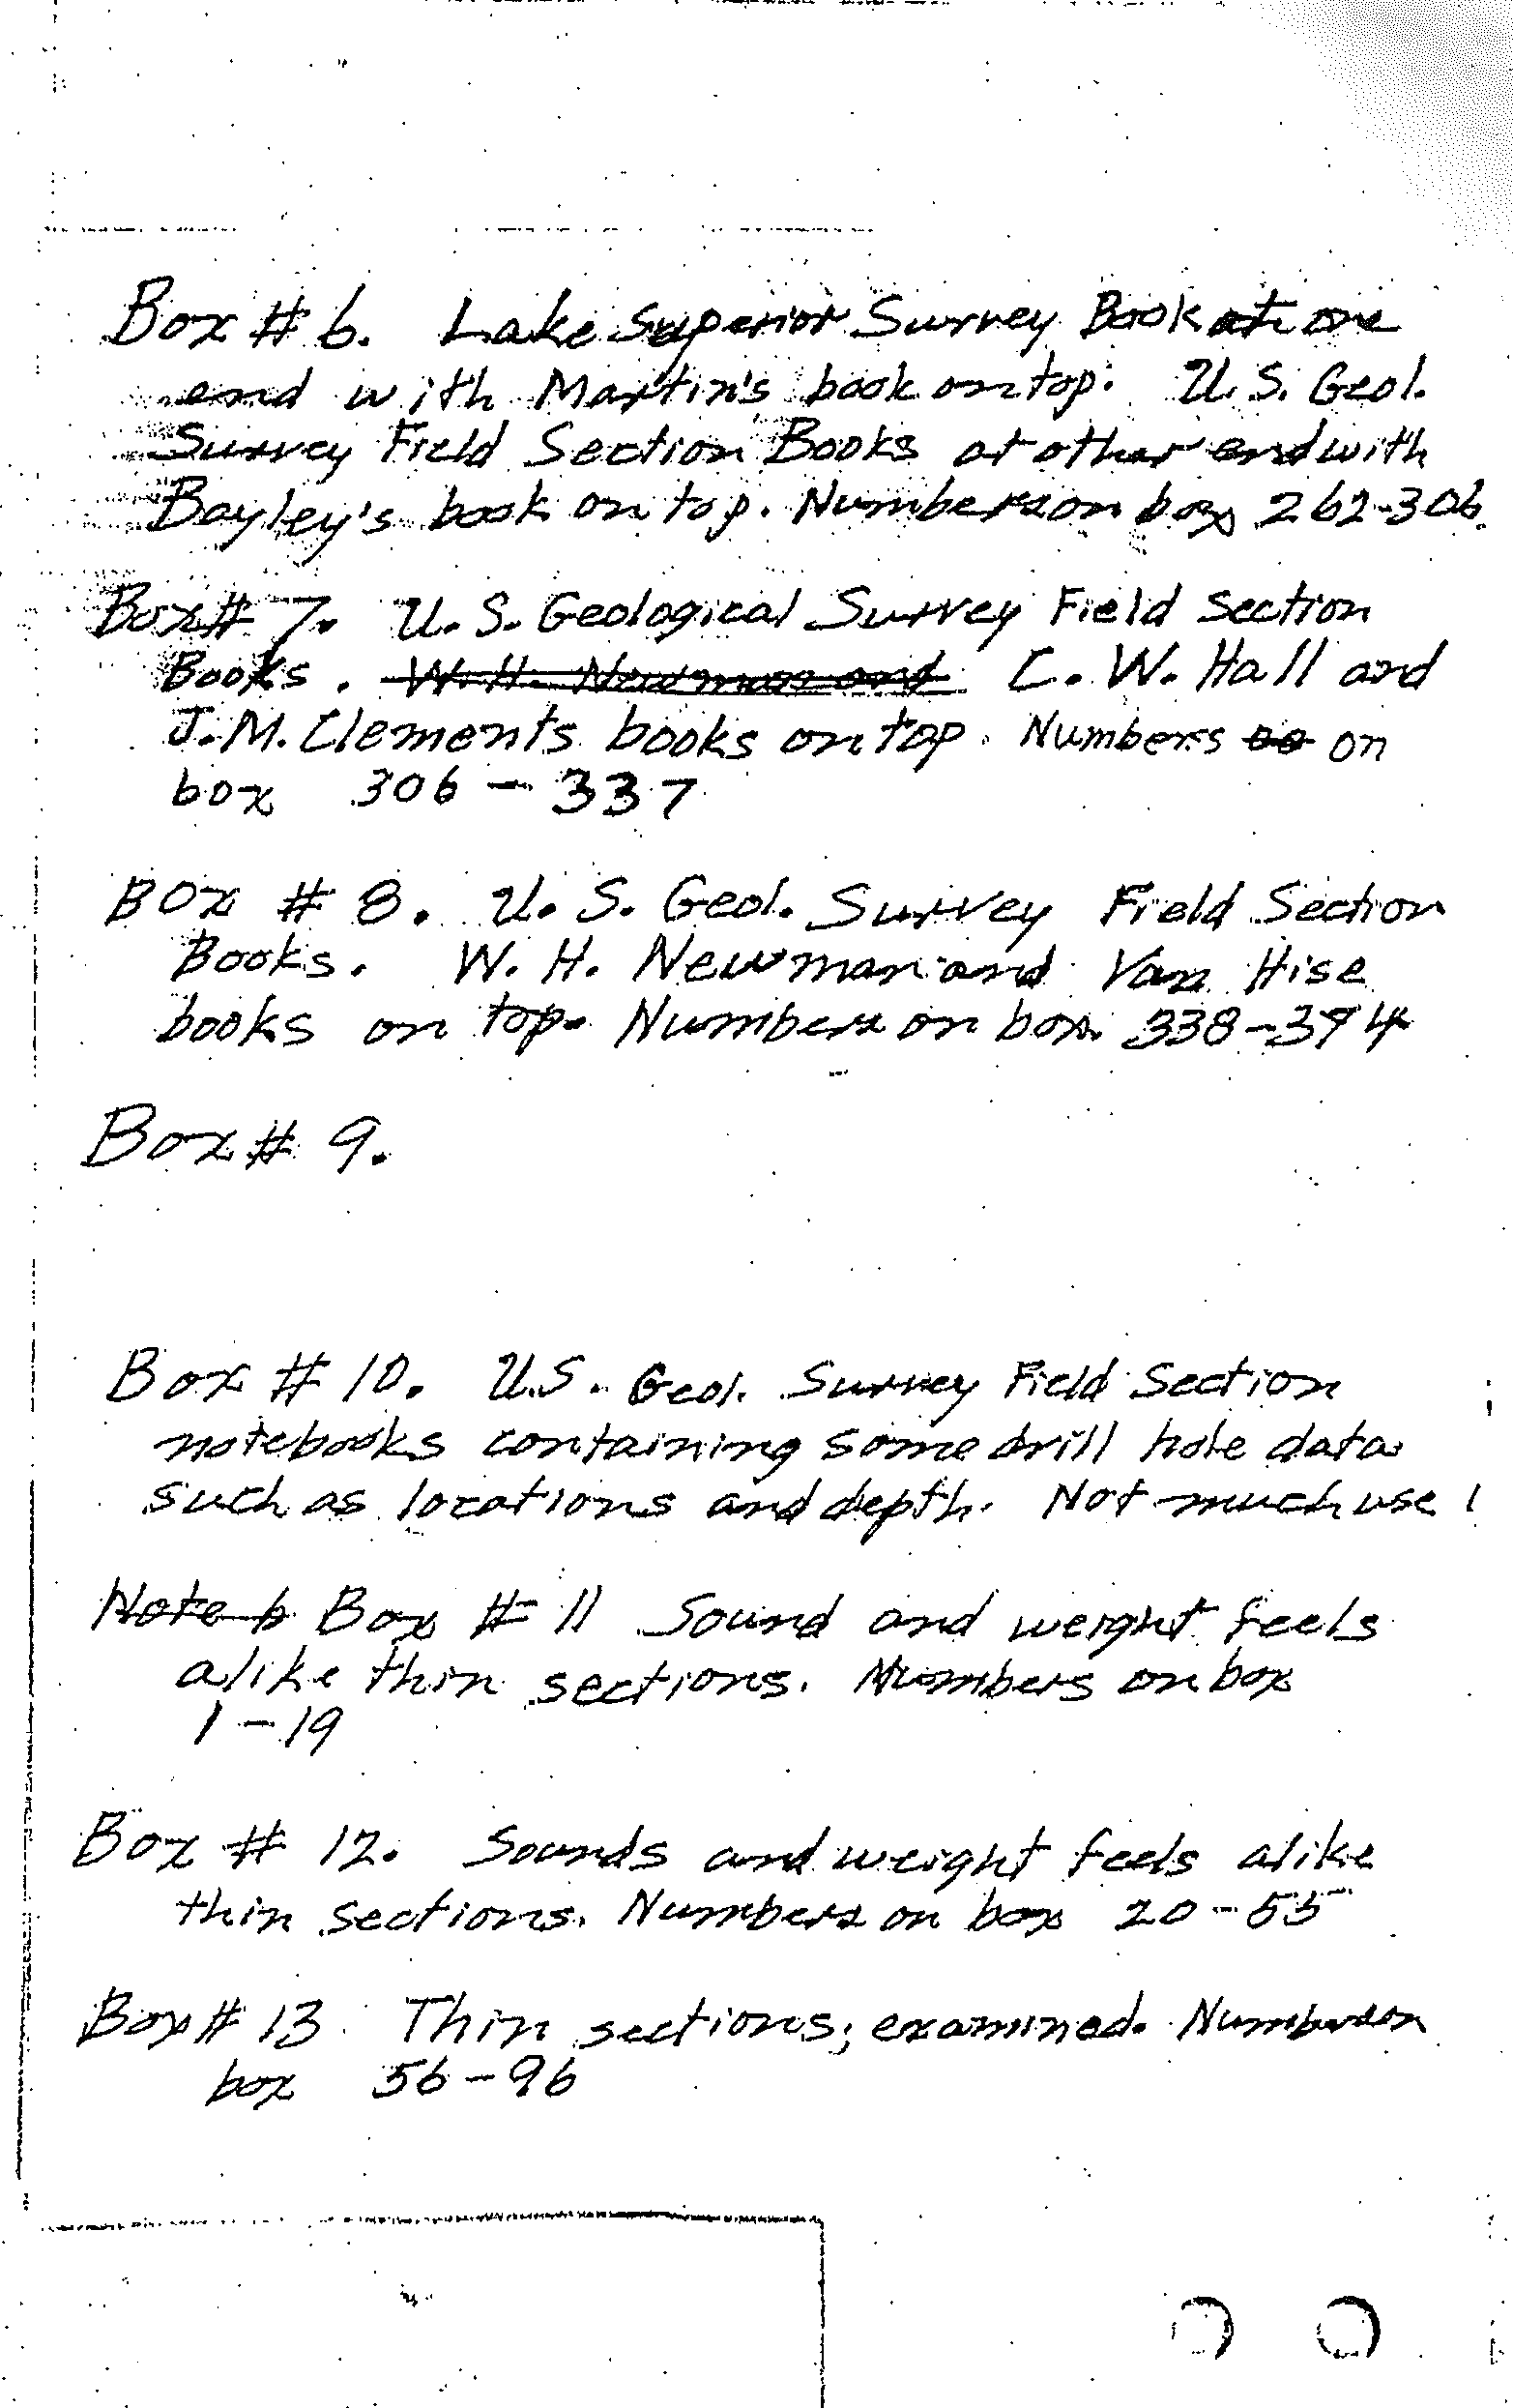 Box # 6. Lake Superior Survey Book at one
end with Martin's book on top. U. S. Geol.
Survey Field Section Books at other end with
Bayley's book on top. Numbers on box 262-306.
Box # 7. U. S. Geological Survey Field Section
Books. W. H. Newman and C. W. Hall and
J. M. Clements books on top. Numbers oo on
box 306 - 337
Box # 8. U. S. Geol. Survey Field Section
Books. W. H. Newman and Van Hise
books on top. Numbers on box 338-394
Box # 9.
Box # 10. U.S. Geol. Survey Field Section
notebooks containing some drill hole data
such as locations and depth. Not much use!
Note b Box # 11 Sound and weight feels
alike thin sections. Numbers on box
1 - 19
Box # 12. Sounds and weight feels alike
thin sections. Numbers on box 20 - 55
Box # 13 Thin sections; examined. Numbers on
box 56 - 96